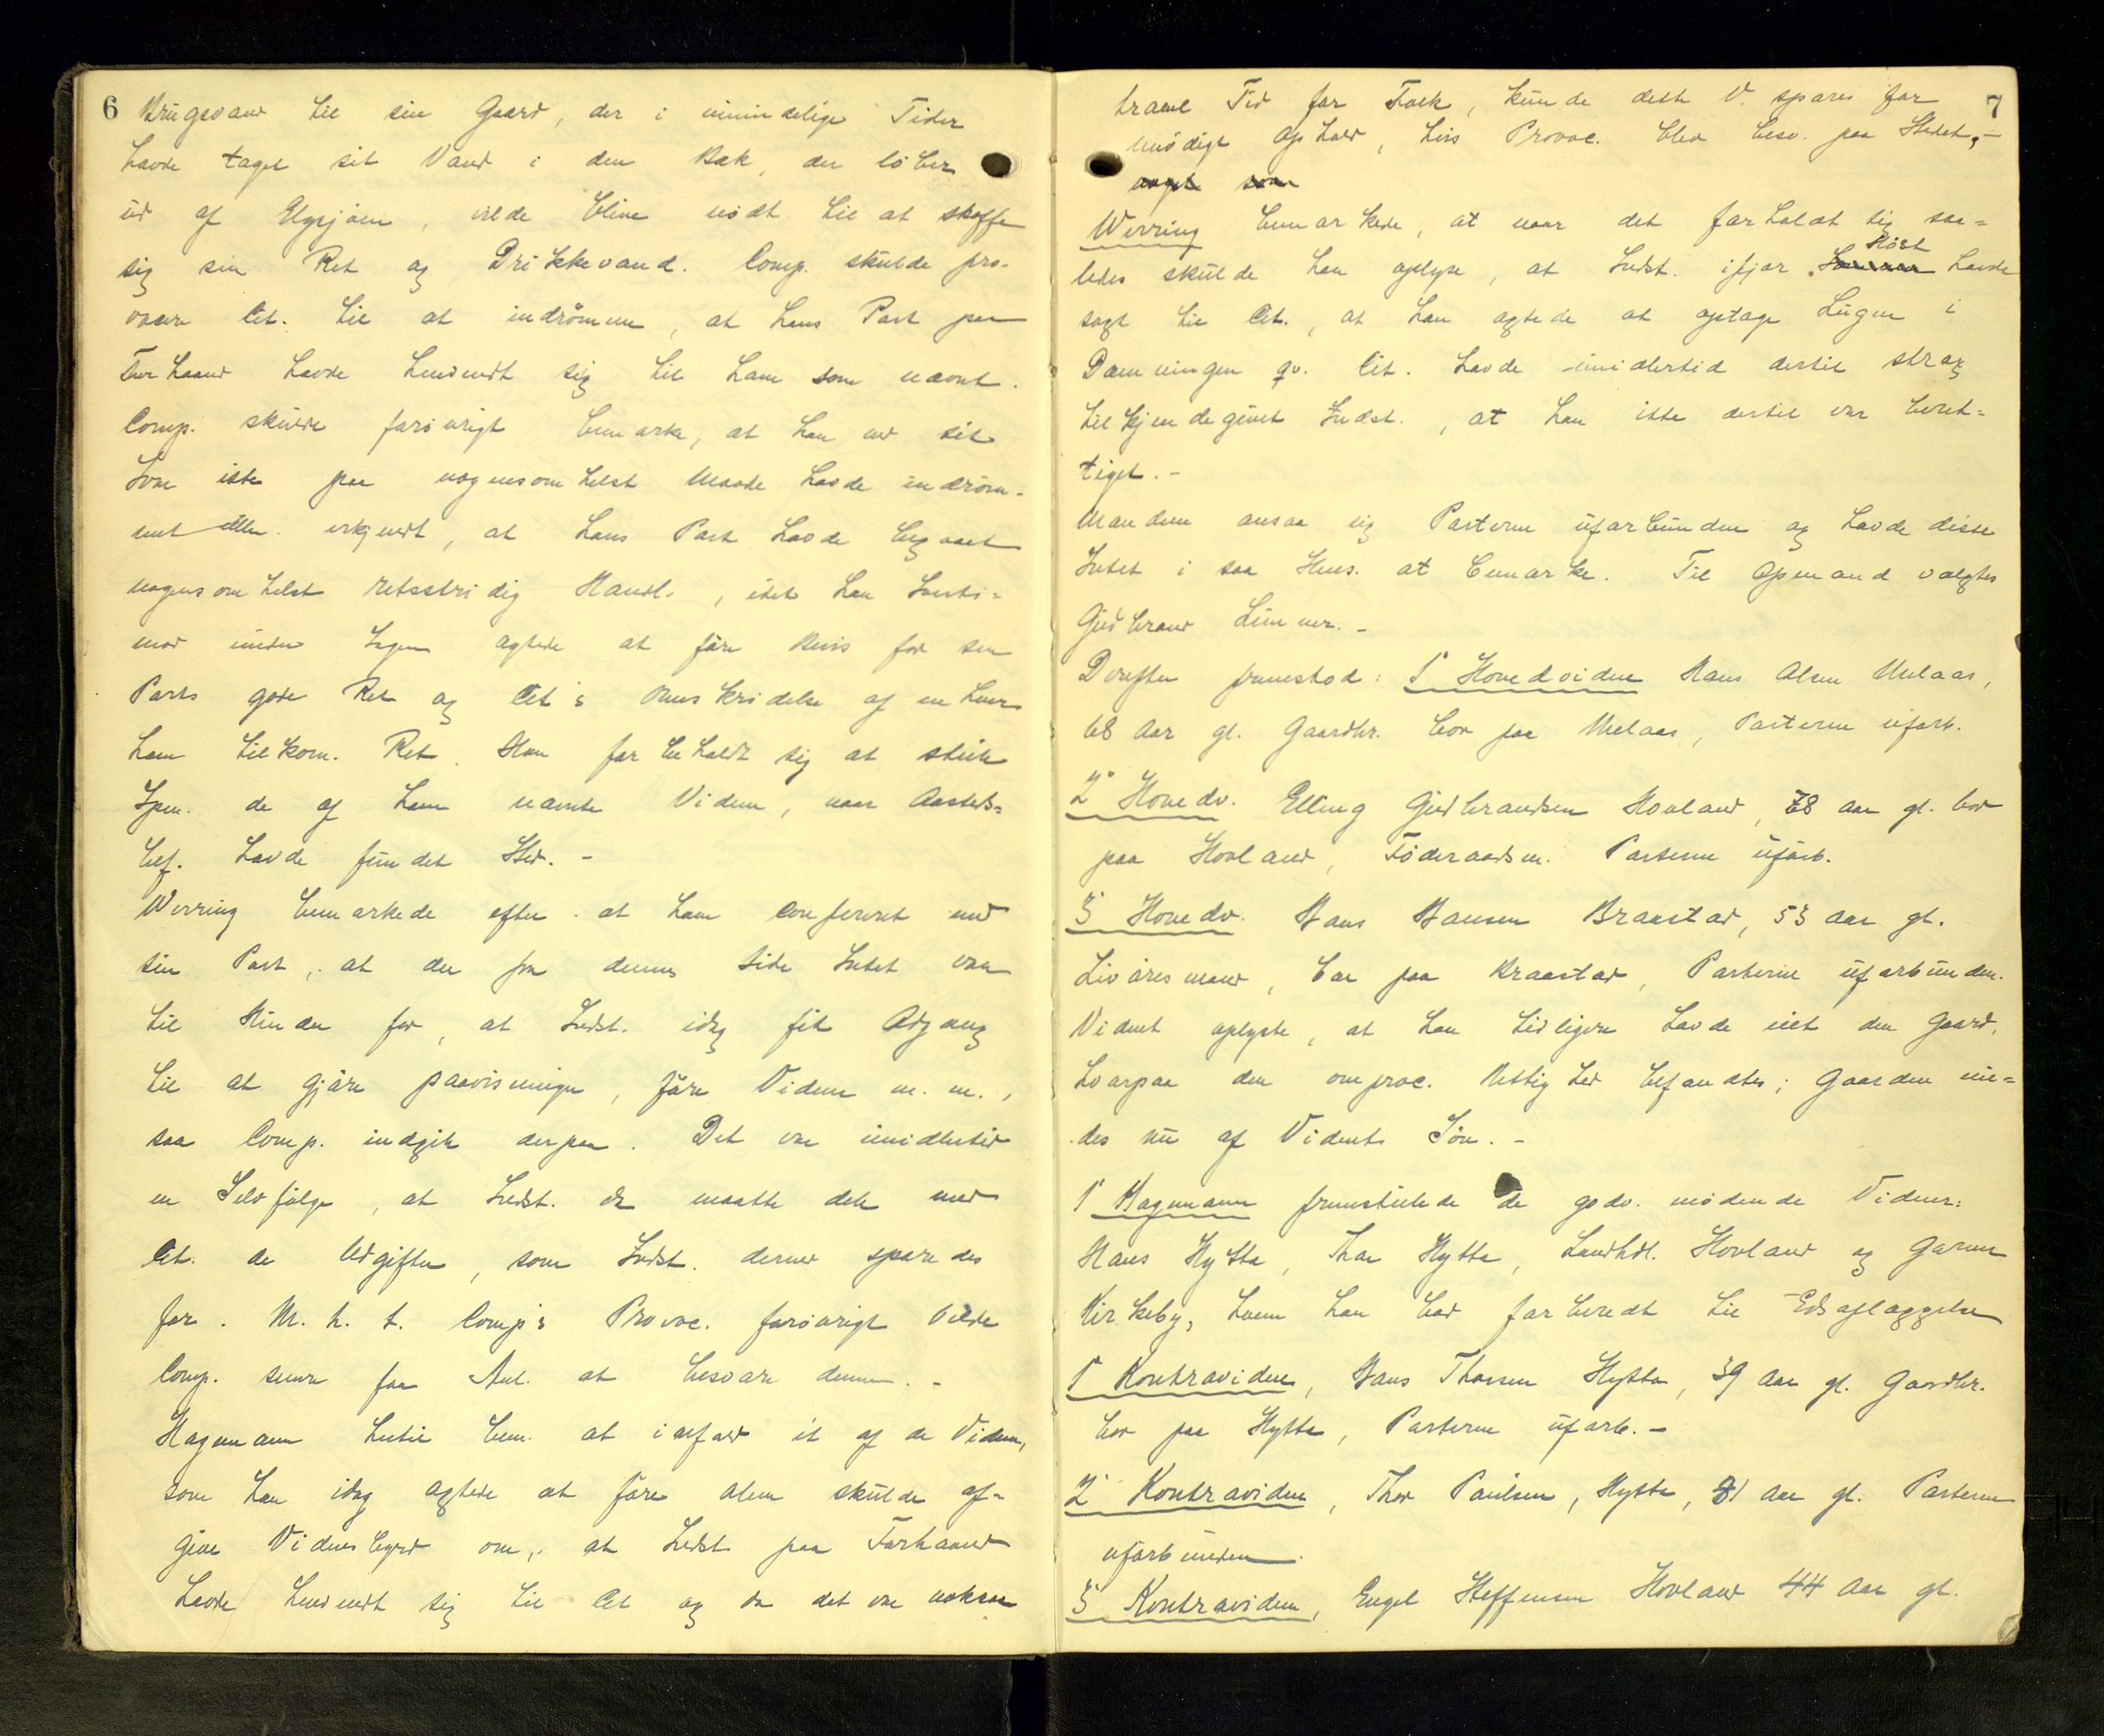 6
Brugsvand til sin Gaard, der i umindelige Tider
havde taget sit Vand i den Bæk, der löber
ud af Elgsjöen, vilde blive nödt til at skaffe
sig sin Ret og Drikkevand. Comp. skulde pro-
vocere Cit. til at indrömme, at hans Part paa
Forhaand havde henvendt sig til ham som nævnt.
Comp. skulde forövrigt bemærke, at han ved sit
Svar ikke paa nogensomhelst Maade havde indröm-
met eller erkjendt, at hans Part havde begaaet
nogensomhelst retsstridig Handl., idet han tverti-
mod under Sagen agtede at före Bevis for sin
Parts gode Ret og Cit's Overskridelse af en hver
ham tilkom. Ret. Han forbeholdt sig at stille
Spm. de af ham nævnte Vidner, naar Aasteds-
bef. havde fundet Sted. -
Werring bemærkede efter at have confereret med
sin Part, at der fra dennes Side Intet var
til Hinder for, at Indst. idag fik Adgang
til at gjöre Paavisninger, före Vidner m. m.,
saa Comp. indgik derpaa. Det var imidlertid
en Selvfölge, at Indst. da maatte dele med
Cit. de Udgifter, som Indst. derved sparedes
for. M. h. t. Comp's Provoc. forövrigt vilde
Comp. senere faa Anl. at besvare denne. -
Hagemann hertil bem. at ialfald et af de Vidner,
som han idag agtede at före alene skulde af-
give Vidnesbyrd om, at Indst. paa Forhaand
havde henvendt sig til Cit og da det var noksaa
7
travel Tid for Folk, kunde dette V. spares for
unödigt Ophold, hvis Provoc. blev besv. paa Stedet,-
Werring bemærkede, at naar det forholdt sig saa-
ledes skulde han oplyse, at Indst. ifjor Höst havde
sagt til Cit., at han agtede at optage Lugen i
Dæmningen qv. Cit. havde imidlertid dertil strax
tilkjendegivet Indst., at han ikke dertil var beret-
tiget. -
Mændene ansaa sig Parterne uforbunden og havde disse
Intet i saa Hens. at bemærke. Til Opmand valgtes
Gudbrand Linner. -
Derefter fremstod: 1' Hovedvidne Hans Olsen Melaas,
68 Aar gl. Gaardbr. bor paa Melaas, Parterne uforb.
2' Hovedv. Elling Gudbrandsen Hovland, 78 Aar gl. bor
paa Hovland, Föderaadsm. Parterne uforb.
3' Hovedv. Hans Hansen Braastad, 53 Aar gl.
Livöresmand, bor paa Braastad, Parterne uforbunden.
Vidnet oplyste, at han tidligere havde eiet den Gaard,
hvorpaa den omproc. Rettighed befandtes; Gaarden eie-
des nu af Vidnets Sön. -
Hagemann fremstillede de godv. mödende Vidner:
Hans Hytta, Thor Hytta, Landhdl. Hovland og Garver
Kirkeby, hvem han bad forberedt til Edsaflæggelse
1' Kontravidne, Hans Thorsen Hytta, 39 Aar gl. Gaardbr.
bor paa Hytta, Parterne uforb. -
2' Kontravidne, Thor Paulsen, Hytta, 81 Aar gl. Parterne
uforbunden.
3' Kontravidne, Engel Steffensen Hovland 44 Aar gl.